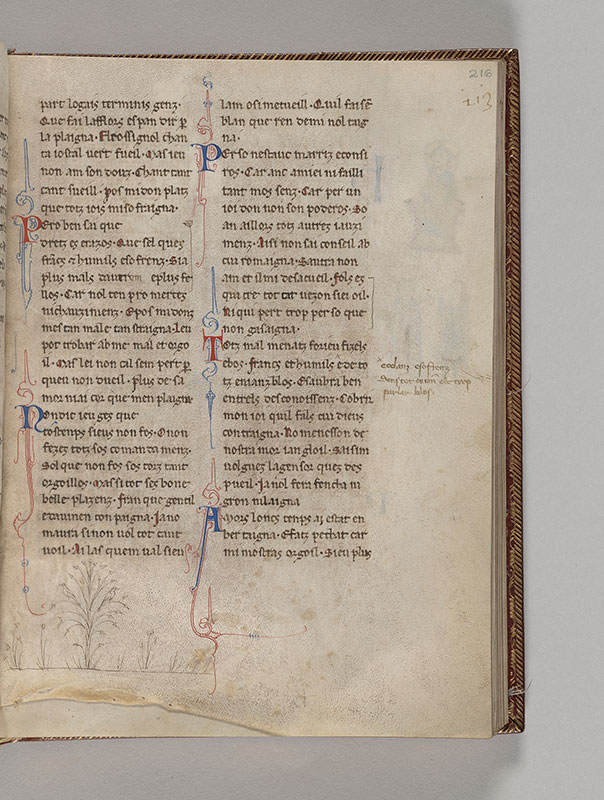 216
213
part logais terminis genz.
Que fai lafflors espan dir p
la plaigna. El rossignol chan
ta iostal uert fueil. Mas ieu
non am son douz. Chant tant
cant sueill. Pos midon platz
que totz iois miso fraigna.
Pero ben sai que
dretz es erazos. Que sel ques
francs & humils eso frenz. Sia
plus mals eplus fe
llos. Car nol ten pro merces
nichauzimenz. Epos midonz
mes tan male tan straigna. Leu
por trobar ab me mal et orgo
il. Mas lei non cil sem pert p
queu non vueil. plus de sa
mor mai cor que men plaigna
Non dic ieu ges que
tostemps sieus non fos. O non
fezez totz sos comanda menz.
Sol que non fos sos corz tant
orgoillos. Massi tot ses bone
belle plazenz. fran que gentil
e dauinen con paigna. Ja no
maura si non uol tot tant
uoil. Ai las quem ual sieu
lam osi metueill. Quil fai sē
blan que ren demi nol taig
na.
Per so nestauc marriz econsi
ros. Car anc amiei ni failli
tant mos senz. Car per un
ioi don non son poderos. So
an aillors totz autrez iauzi
menz. Aisi non sai conseil ab
cui romaigna. Sautra non
am et ilmi desacueil. fols es
qui cre tot cat uezon siei oil.
Ni qui pert trop per so que
non gasaigna.
Totz mal menatz fizels
e bos. francs et humils
tz emanz blos. Esaubra ben
entrels desconoissenz. Cobrir
mon ioi quil fals cui dieus
contraigna. No menesson de
nostra mor iangloil. Saisim
uolgues lagensor ques des
pueil. Ja nol fera fencha ni
gron nilaigna
Amors loncs temps ai estat en
ber taigna. Efatz pechat car
mi mostras orgoil. Sieu plus
esofrenz
trop
parlar blos.